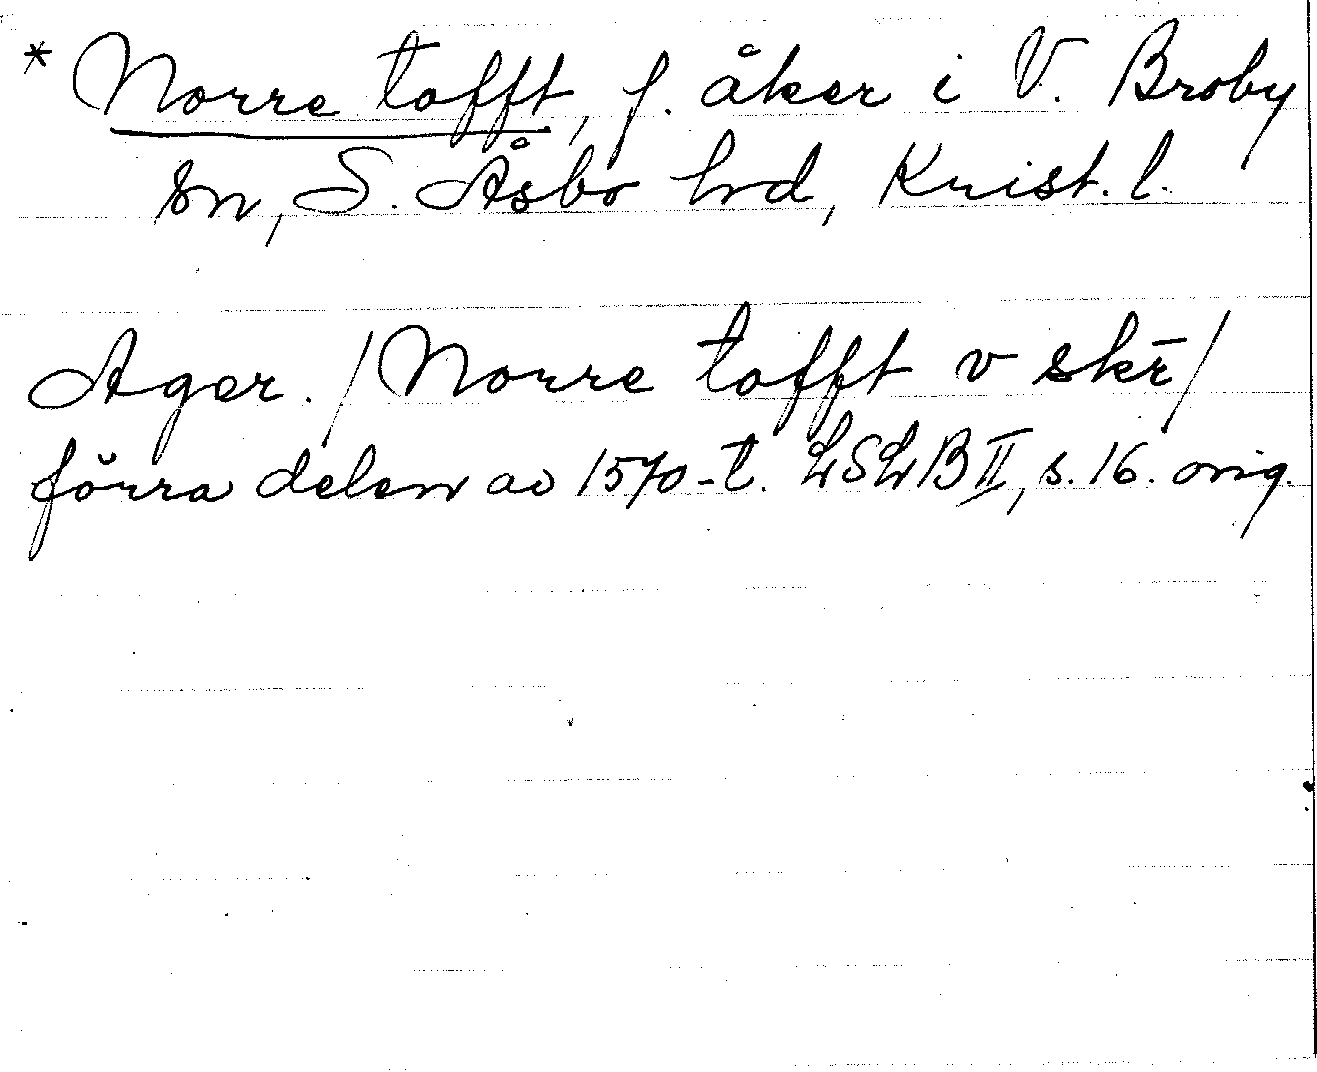 * Norre tofft, f. åker i V. Broby
sn, S. Åsbo hrd, Krist. l.
Ager. / Norre tofft v skr̄ /
förra delen av 1570-t. LSLB II, s. 16. orig.